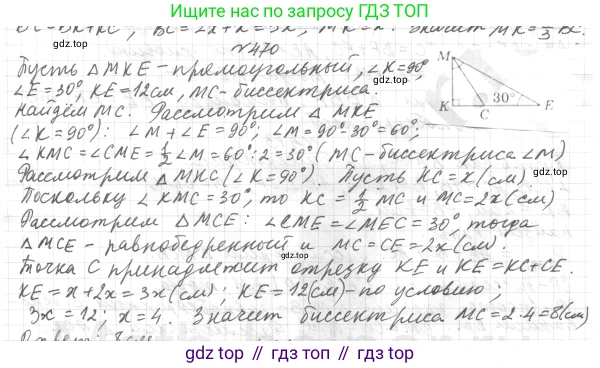 Ищите нас по запросу ГДЗ ТОП
gdz.top
№470
Пусть △MKE - прямоугольный, ∠K=90°,
∠E=30°, KE=12см, MC-биссектриса.
Найдём MC. Рассмотрим △ MKE
(∠K=90°): ∠M+∠E=90°; ∠M=90°-30°=60°;
∠KMC=∠CME=1/2∠M=60°:2=30° (MC-биссектриса ∠M)
Рассмотрим △MKC (∠K=90°). Пусть KC=x(см)
Поскольку ∠KMC=30°, то KC=1/2 MC и MC=2x(см)
Рассмотрим △MCE: ∠CME=∠MEC=30°, тогда
△MCE - равнобедренный и MC=CE=2x(см).
Точка C принадлежит отрезку KE и KE=KC+CE.
KE=x+2x=3x(см); KE=12(см)-по условию;
3x=12; x=4. Значит биссектриса MC=2·4=8(см)
M
K
C
30°
E
gdz.top
gdz.top
gdz.top
gdz.top
gdz.top
gdz.top // гдз.top // гдз.топ